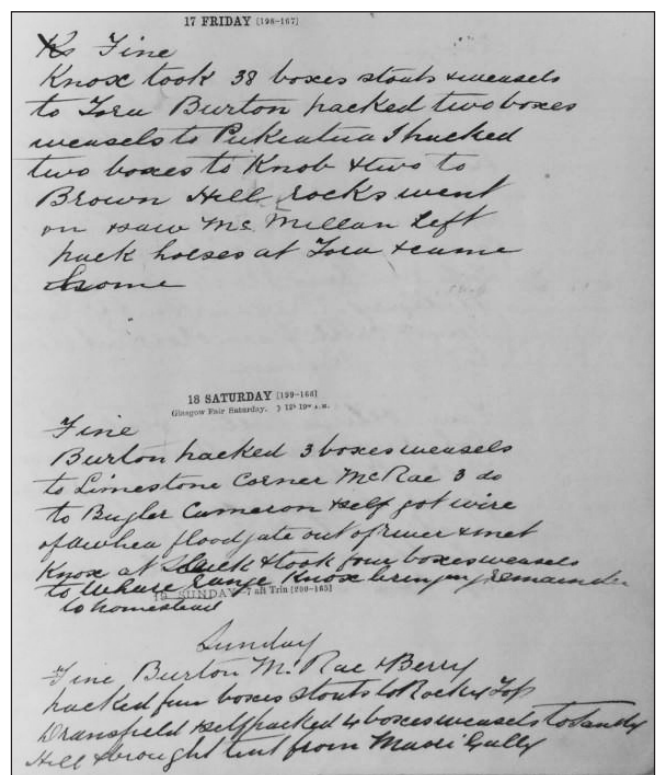 17 FRIDAY [198-167]
Fine
Knox took 38 boxes stoats & weasels
to Tora Burton packed two boxes
weasels to Pukeatua I packed
two boxes to Knob & two to
Brown Hill rocks went
on & saw McMillan Left
pack horses at Tora & came
home
18 SATURDAY [199-166]
Glasgow Fair Saturday.
Fine
Burton packed 3 boxes weasels
to Limestone Corner McRae 3 do
to Bugler Cameron & self got wire
of Awhea floodgate out of river & met
Knox at & took four boxes weasels
to Whare range Knox bringing remainder
19 SUNDAY-7 aft Trin [200-165]
to homestead
Sunday
Fine Burton McRae & Berry
packed four boxes stoats to Rocky Top
Dransfield & self packed 4 boxes weasels to Sandy
Hill & brought tent from Maori Gully